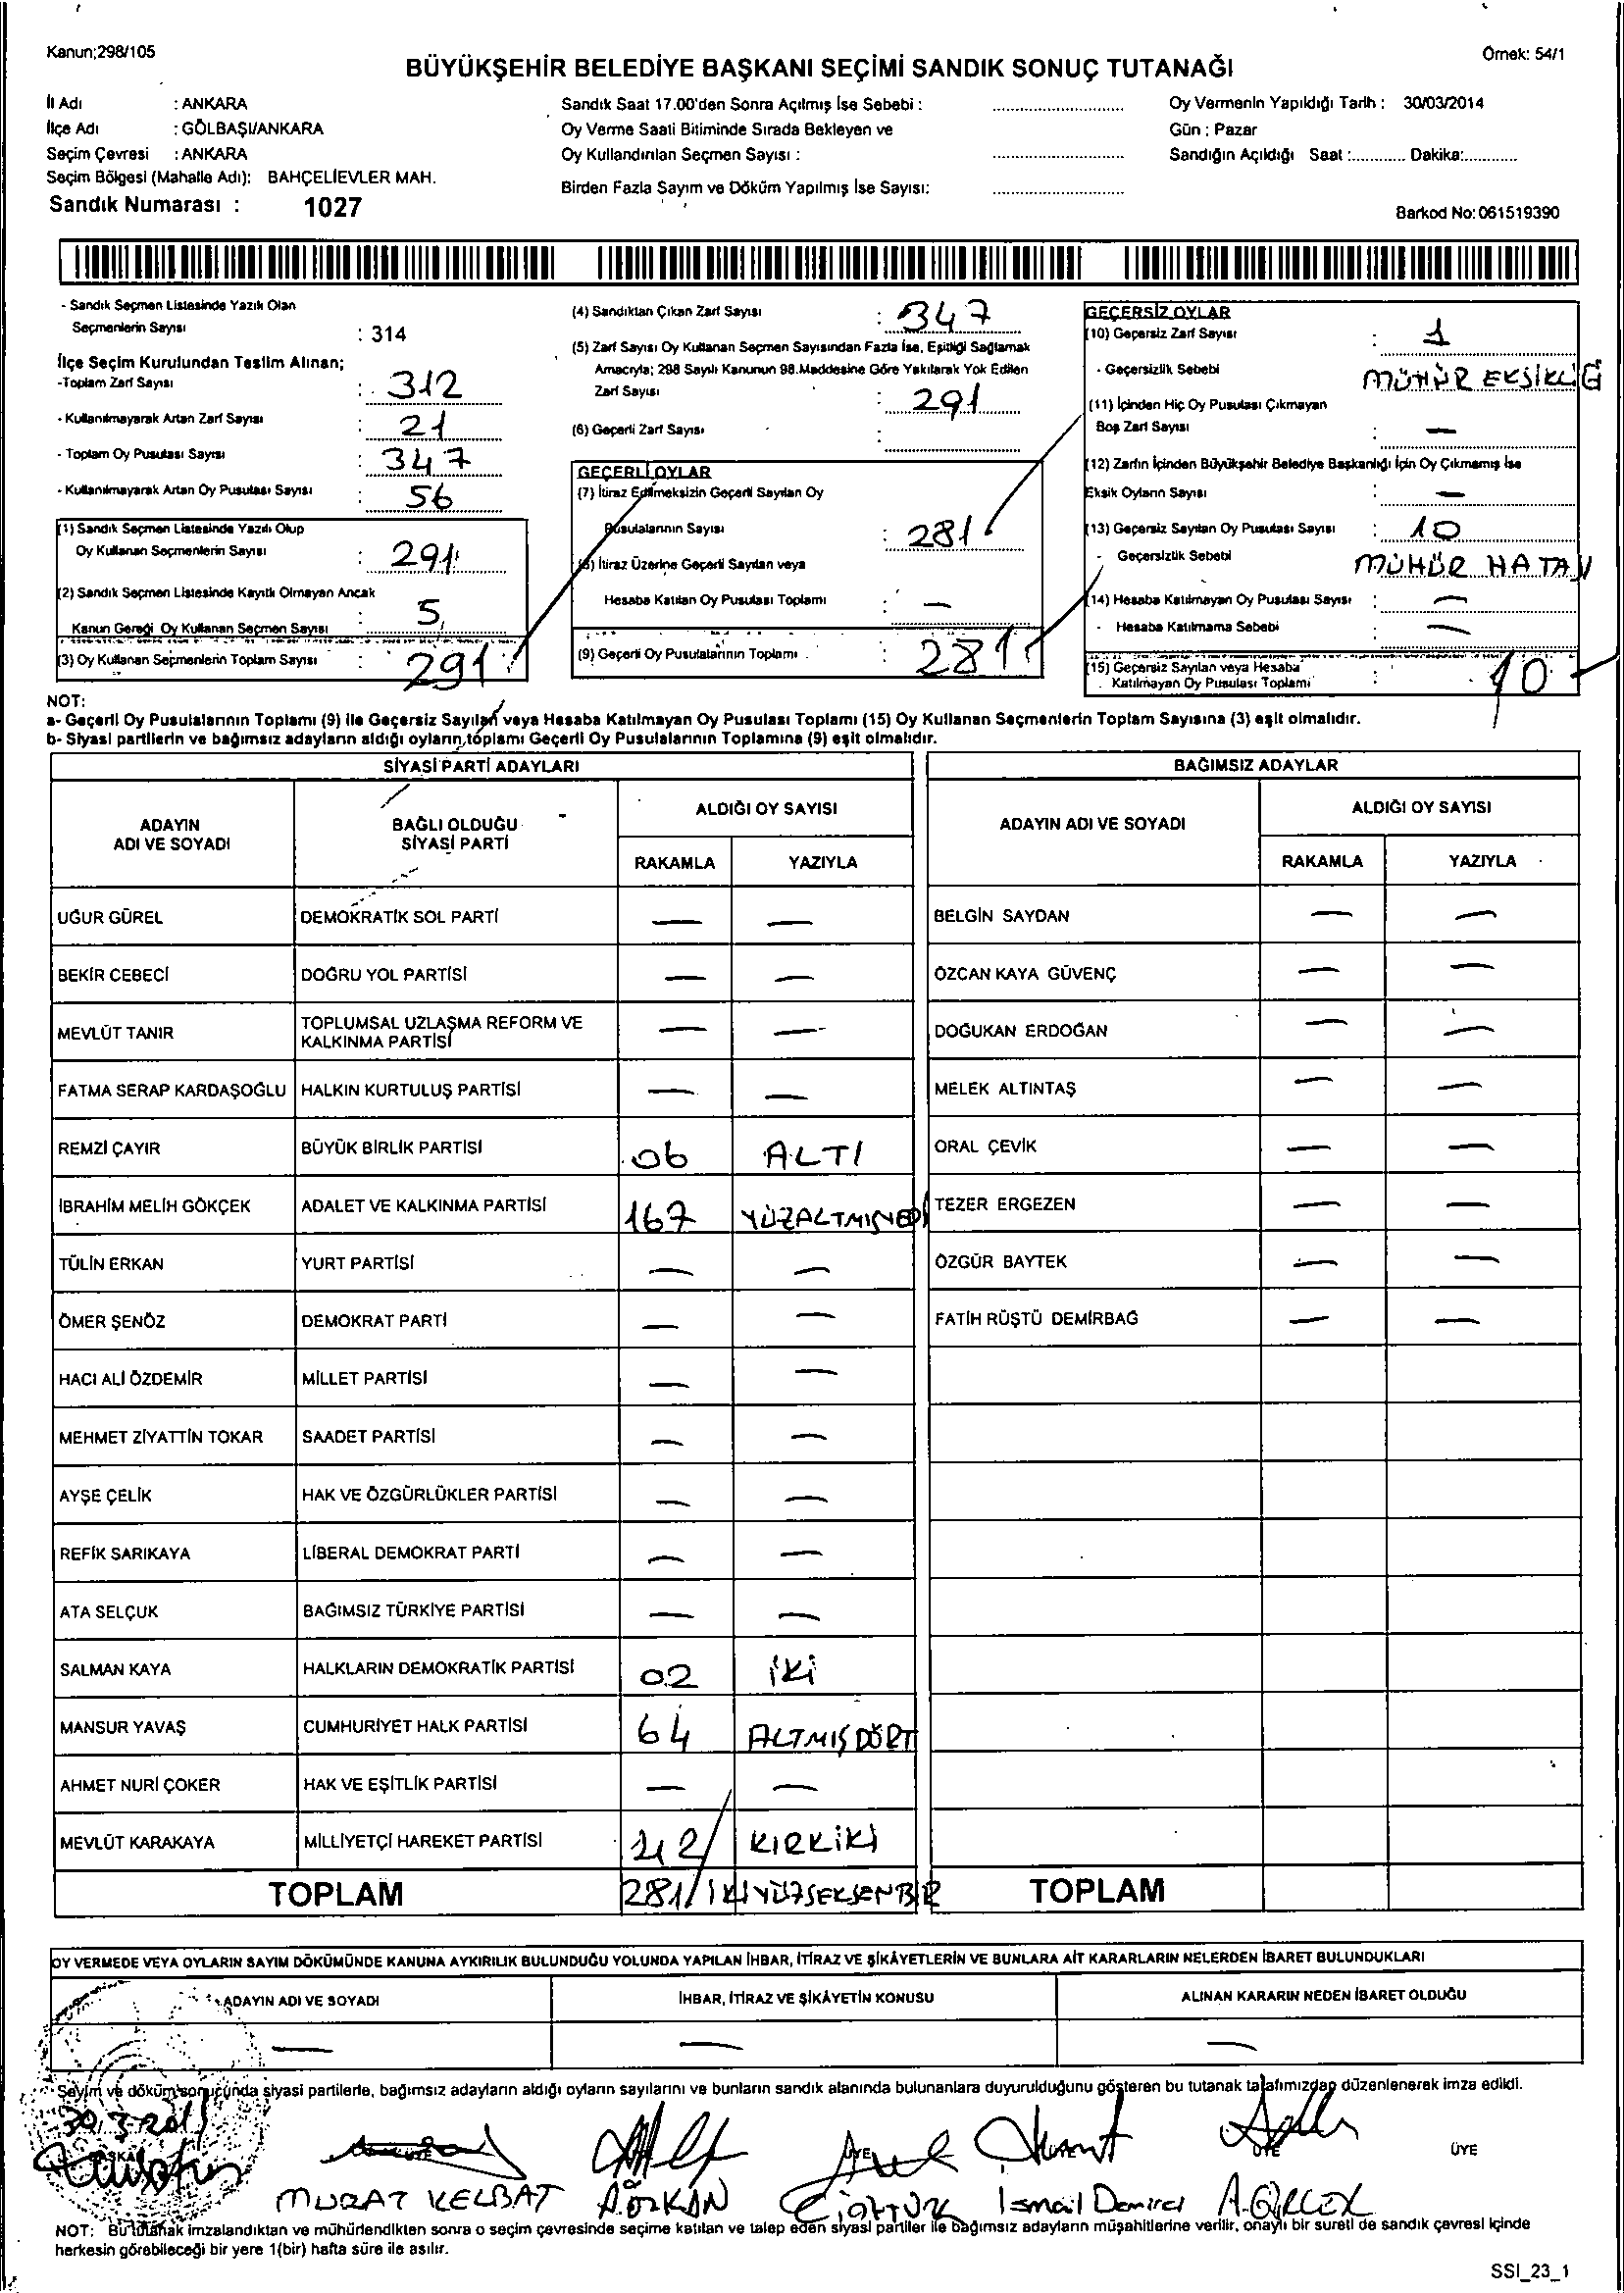 Kanun;298/105
Örnek: 54/1
BÜYÜKŞEHİR BELEDİYE BAŞKANI SEÇİMİ SANDIK SONUÇ TUTANAĞI
İl Adı : ANKARA
İlçe Adı : GÖLBAŞI/ANKARA
Seçim Çevresi : ANKARA
Seçim Bölgesi (Mahalle Adı): BAHÇELİEVLER MAH.
Sandık Numarası : 1027
Sandık Saat 17.00'den Sonra Açılmış İse Sebebi :
Oy Verme Saati Bitiminde Sırada Bekleyen ve
Oy Kullandırılan Seçmen Sayısı :
Birden Fazla Sayım ve Döküm Yapılmış İse Sayısı:
Oy Vermenin Yapıldığı Tarih : 30/03/2014
Gün : Pazar
Sandığın Açıldığı Saat :............ Dakika:............
Barkod No: 061519390
- Sandık Seçmen Listesinde Yazılı Olan
Seçmenlerin Sayısı : 314
İlçe Seçim Kurulundan Teslim Alınan;
-Toplam Zarf Sayısı : 312
- Kullanılmayarak Artan Zarf Sayısı : 21
- Toplam Oy Pusulası Sayısı : 347
- Kullanılmayarak Artan Oy Pusulası Sayısı : 56
(1) Sandık Seçmen Listesinde Yazılı Olup
Oy Kullanan Seçmenlerin Sayısı : 291
(2) Sandık Seçmen Listesinde Kayıtlı Olmayan Ancak
Kanun Gereği Oy Kullanan Seçmen Sayısı : 5
(3) Oy Kullanan Seçmenlerin Toplam Sayısı : 291
(4) Sandıktan Çıkan Zarf Sayısı : 347
(5) Zarf Sayısı Oy Kullanan Seçmen Sayısından Fazla İse, Eşitliği Sağlamak
Amacıyla; 298 Sayılı Kanunun 98.Maddesine Göre Yakılarak Yok Edilen
Zarf Sayısı : 291
(6) Geçerli Zarf Sayısı :
GEÇERLİ OYLAR
(7) İtiraz Edilmeksizin Geçerli Sayılan Oy
Pusulalarının Sayısı : 281
(8) İtiraz Üzerine Geçerli Sayılan veya
Hesaba Katılan Oy Pusulası Toplamı : —
(9) Geçerli Oy Pusulalarının Toplamı : 281
GEÇERSİZ OYLAR
(10) Geçersiz Zarf Sayısı : 1
- Geçersizlik Sebebi MÜHÜR EKSİKLİĞ
(11) İçinden Hiç Oy Pusulası Çıkmayan
Boş Zarf Sayısı : —
(12) Zarfın İçinden Büyükşehir Belediye Başkanlığı İçin Oy Çıkmamış İse
Eksik Oyların Sayısı : —
(13) Geçersiz Sayılan Oy Pusulası Sayısı : 10
- Geçersizlik Sebebi MÜHÜR HATASI
(14) Hesaba Katılmayan Oy Pusulası Sayısı : —
- Hesaba Katılmama Sebebi —
(15) Geçersiz Sayılan veya Hesaba
Katılmayan Oy Pusulası Toplamı : 10
NOT:
a- Geçerli Oy Pusulalarının Toplamı (9) ile Geçersiz Sayılan veya Hesaba Katılmayan Oy Pusulası Toplamı (15) Oy Kullanan Seçmenlerin Toplam Sayısına (3) eşit olmalıdır.
b- Siyasi partilerin ve bağımsız adayların aldığı oyların toplamı Geçerli Oy Pusulalarının Toplamına (9) eşit olmalıdır.
SİYASİ PARTİ ADAYLARI
ADAYIN ADI VE SOYADI
BAĞLI OLDUĞU SİYASİ PARTİ
ALDIĞI OY SAYISI
RAKAMLA YAZIYLA
UĞUR GÜREL DEMOKRATİK SOL PARTİ — —
BEKİR CEBECİ DOĞRU YOL PARTİSİ — —
MEVLÜT TANIR TOPLUMSAL UZLAŞMA REFORM VE KALKINMA PARTİSİ — —
FATMA SERAP KARDAŞOĞLU HALKIN KURTULUŞ PARTİSİ — —
REMZİ ÇAYIR BÜYÜK BİRLİK PARTİSİ 06 ALTI
İBRAHİM MELİH GÖKÇEK ADALET VE KALKINMA PARTİSİ 167 YÜZALTMIŞYEDİ
TÜLİN ERKAN YURT PARTİSİ — —
ÖMER ŞENÖZ DEMOKRAT PARTİ — —
HACI ALİ ÖZDEMİR MİLLET PARTİSİ — —
MEHMET ZİYATTİN TOKAR SAADET PARTİSİ — —
AYŞE ÇELİK HAK VE ÖZGÜRLÜKLER PARTİSİ — —
REFİK SARIKAYA LİBERAL DEMOKRAT PARTİ — —
ATA SELÇUK BAĞIMSIZ TÜRKİYE PARTİSİ — —
SALMAN KAYA HALKLARIN DEMOKRATİK PARTİSİ 02 İKİ
MANSUR YAVAŞ CUMHURİYET HALK PARTİSİ 64 ALTMIŞDÖRT
AHMET NURİ ÇOKER HAK VE EŞİTLİK PARTİSİ — —
MEVLÜT KARAKAYA MİLLİYETÇİ HAREKET PARTİSİ 42 KIRKİKİ
TOPLAM 281 İKİYÜZSEKSENBİR
BAĞIMSIZ ADAYLAR
ADAYIN ADI VE SOYADI
ALDIĞI OY SAYISI
RAKAMLA YAZIYLA
BELGİN SAYDAN — —
ÖZCAN KAYA GÜVENÇ — —
DOĞUKAN ERDOĞAN — —
MELEK ALTINTAŞ — —
ORAL ÇEVİK — —
TEZER ERGEZEN — —
ÖZGÜR BAYTEK — —
FATİH RÜŞTÜ DEMİRBAĞ — —
TOPLAM
OY VERMEDE VEYA OYLARIN SAYIM DÖKÜMÜNDE KANUNA AYKIRILIK BULUNDUĞU YOLUNDA YAPILAN İHBAR, İTİRAZ VE ŞİKÂYETLERİN VE BUNLARA AİT KARARLARIN NELERDEN İBARET BULUNDUKLARI
ADAYIN ADI VE SOYADI
İHBAR, İTİRAZ VE ŞİKÂYETİN KONUSU
ALINAN KARARIN NEDEN İBARET OLDUĞU
— — —
Sayım ve döküm sonucunda siyasi partilerle, bağımsız adayların aldığı oyların sayılarını ve bunların sandık alanında bulunanlara duyurulduğunu gösteren bu tutanak tarafımızdan düzenlenerek imza edildi.
ÜYE ÜYE ÜYE
MURAT KELBAT A.ÖZKAN İsmail Demirci
NOT: Bu tutanak imzalandıktan ve mühürlendikten sonra o seçim çevresinde seçime katılan ve talep eden siyasi partiler ile bağımsız adayların müşahitlerine verilir, onaylı bir sureti de sandık çevresi içinde
herkesin görebileceği bir yere 1(bir) hafta süre ile asılır.
SSI_23_1